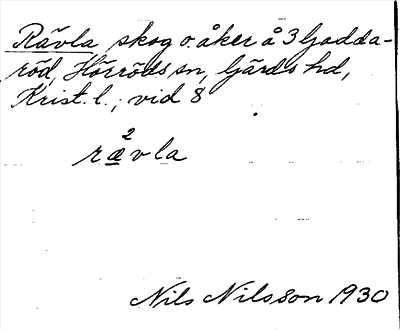 Rävla skog o. åker å 3 Ljadda-
röd, Hörröds sn, Gärds hd,
Krist. l., vid 8
2
rævla
Nils Nilsson 1930